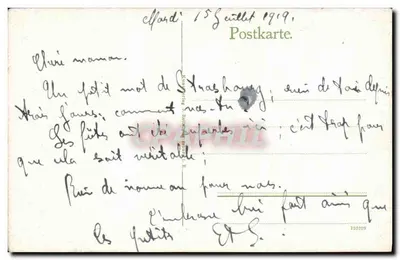 Mardi 15 Juillet 1919.
Postkarte.
Chère maman.
Un petit mot de Strasbourg; rien de toi depuis
trois jours; comment vas-tu
Les fêtes ont été ici; c'est trop pour
que cela soit véritable;
Rien de nouveau pour nous.
T'embrasse bien fort ainsi que
les petits